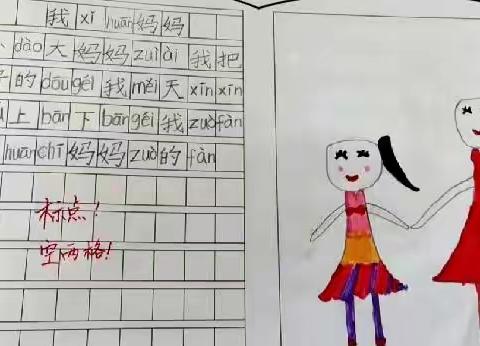 我 xǐ huān 妈妈
、dào 大 妈妈 zuì ài 我 把
的 dōu gěi 我 měi 天 xīn xīn
上 bān 下 bān gěi 我 zuò fàn
huān chī 妈妈 zuò 的 fàn
标点!
空两格!